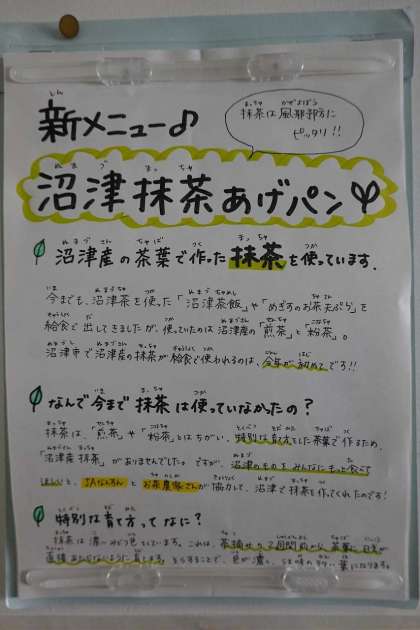 抹茶は風邪予防に
ピッタリ!!
新メニュー♪
沼津抹茶あげパン
沼津産の茶葉で作った抹茶を使っています.
今までも、沼津茶を使った「沼津茶飯」や「めぎすのお茶天ぷら」を
給食で出してきましたが、使っていたのは沼津産の「煎茶」と「粉茶」。
沼津市で沼津産の抹茶が給食で使われるのは、今年が初めてです!!
なんで今まで抹茶は使っていなかったの?
抹茶は、「煎茶」や「粉茶」とはちがい、特別な育て方をした茶葉で作るため、
「沼津産抹茶」がありませんでした。ですが、沼津のものをみんなにもっと食べて
ほしいと、JAなんすんとお茶農家さんが協力して、沼津で抹茶を作ってくれたのです!
特別な育て方ってなに?
抹茶は濃いみどり色をしています。これは、茶摘みの2週間前から茶葉に日光が
直接あたらないように育てます。そうすることで、色が濃い、うま味の多い葉になります。